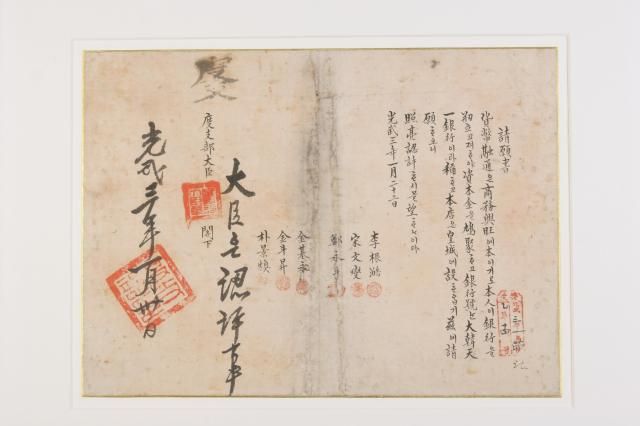 請願書
貨幣融通은商務興旺에本이기로本人이銀行을
刱立코져ᄒᆞ야資本金을鳩聚ᄒᆞ고銀行號는大韓天
一銀行이라稱ᄒᆞ고本店은皇城에設ᄒᆞ옵기玆에請
願ᄒᆞ오니
照亮認許ᄒᆞ시믈望ᄒᆞᄂᆞ이다
光武三年一月二十三日
李根澔
宋文燮
鄭永斗
金基永
金斗昇
朴景煥
度支部大臣 閣下
大臣은認許事
光武三年一月卅日